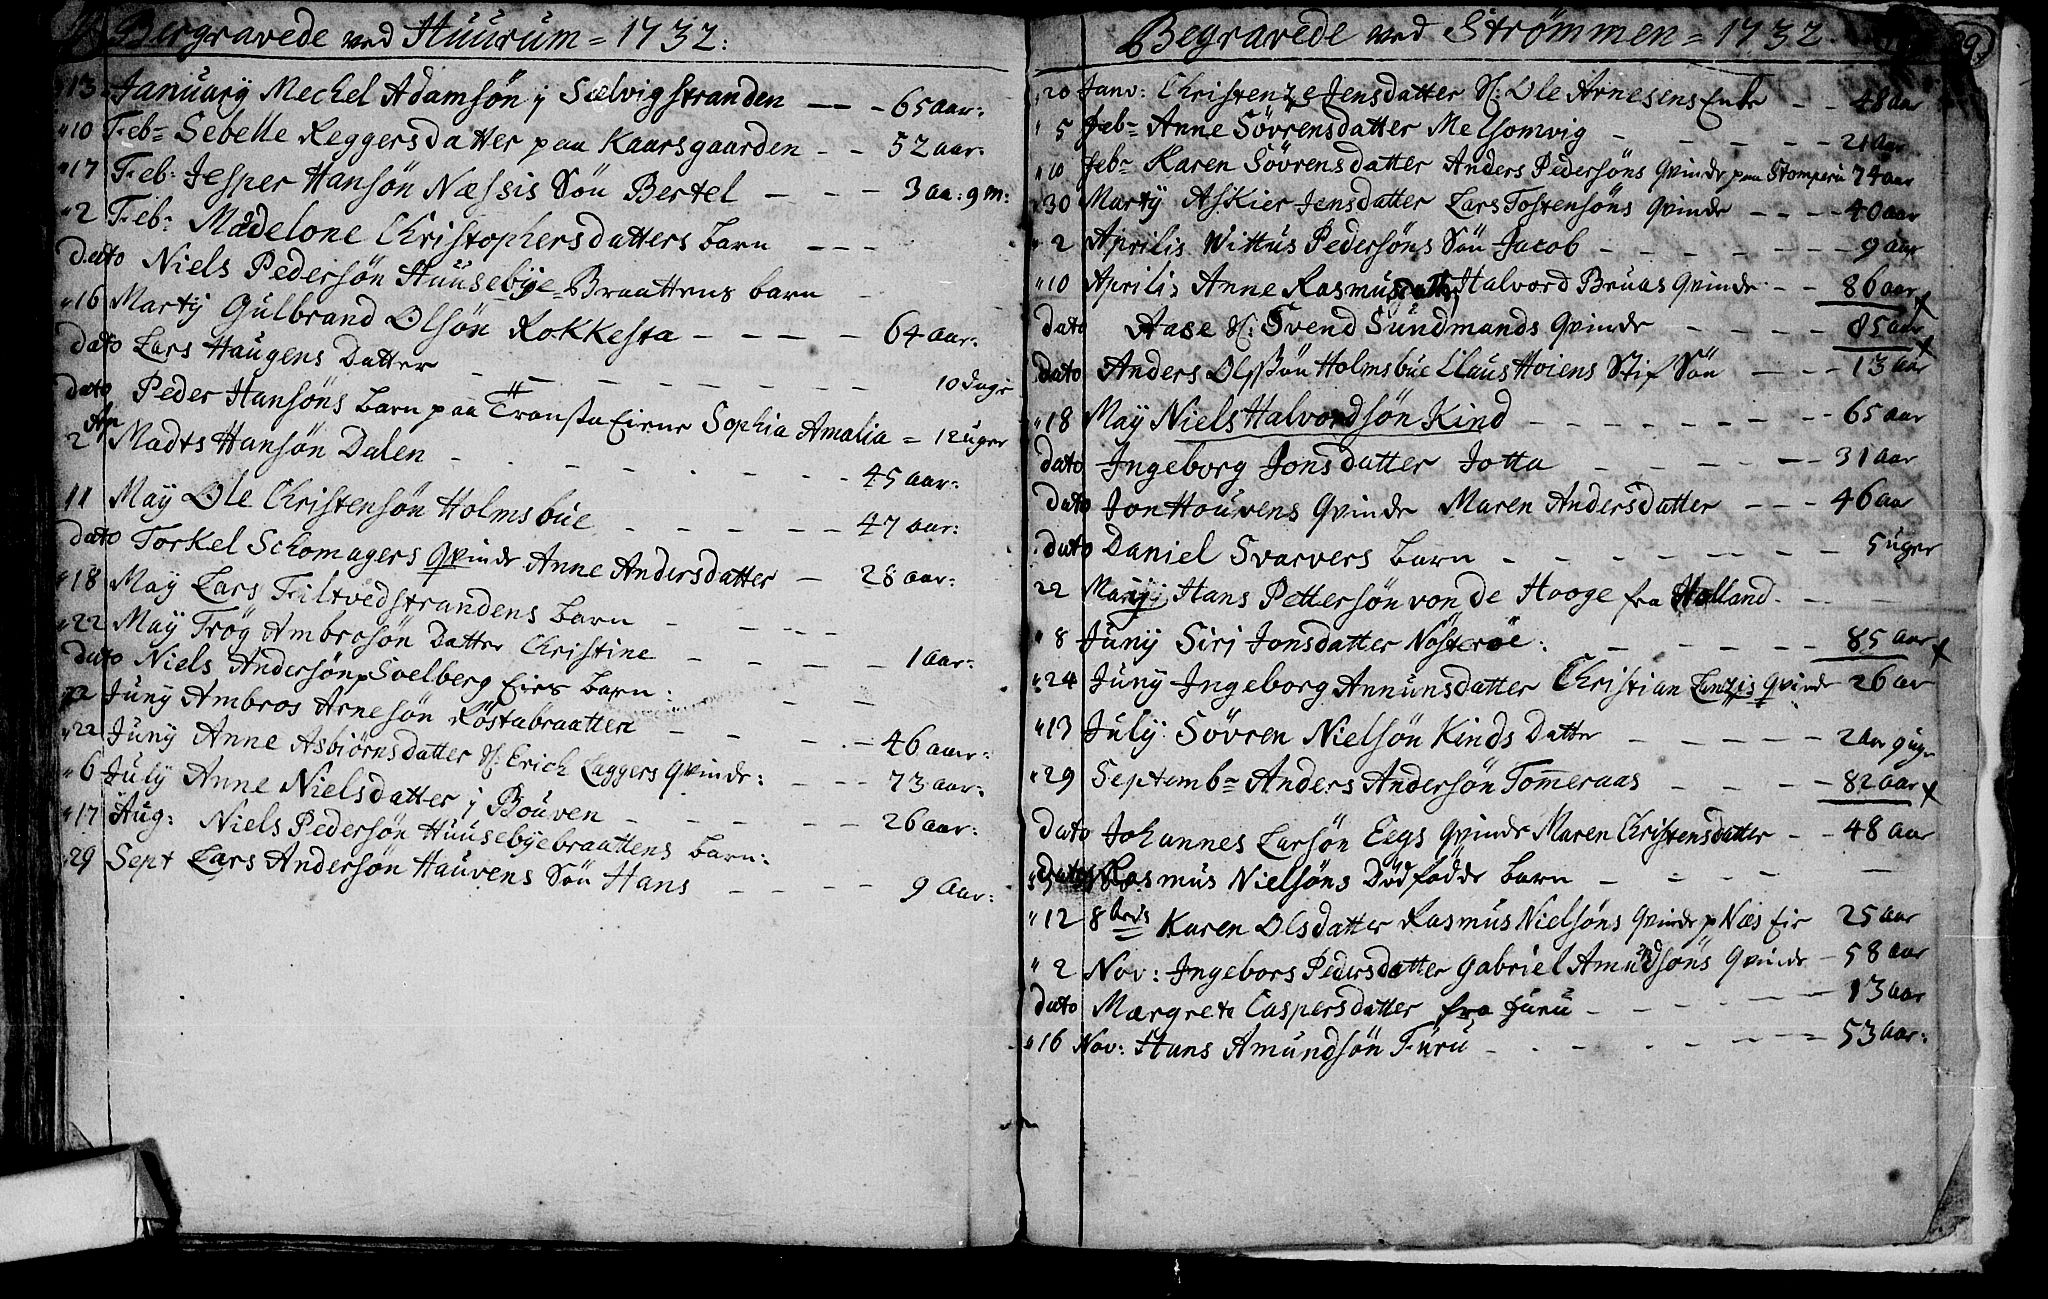 Begravede ved Huurum = 1732:
"13 January Mechel Adamsøn j Sælvigstranden — — - 65 aar:
"10 Feb: Sebelle Reggersdatter paa Kaarsgaarden - - 52 aar:
"17 Feb: Jesper Hansøn Næssis Søn Bertel - - - 3 aa: 9 m:
"2 Feb: Madelone Christophersdatters barn - - -
dato Niels Pedersøn Huusebÿe=Braattens barn -
"16 Martij Gulbrand Olsøn Rokkesta - - - - 64 aar:
dato Lars Haugens Datter - - - - - - - - 10 dage
dato Peder Hansøns barn paa Transta Eierne Sophia Amalia = 12 uger
2 Ap Madts Hansøn Dalen - - - - - - - - 45 aar:
11 Maÿ Ole Christensøn Holmsbue - - - - - 47 aar:
dato Torkel Schomagers Qvinde Anne Andersdatter - 28 aar:
"18 Maÿ Lars Filtvedstrandens barn - - - -
"22 Maÿ Trøg Ambrosøn Datter Christine - - - - 1 aar:
dato Niels Andersøn p Soelberg Eies barn: - -
Junÿ Ambros Arnesøn Røstabraatten - - - - - 46 aar:
"22 Junÿ Anne Asbiørnsdatter Sl: Erich Laggers Qvinde: - - - 73 aar:
"6 July Anne Nielsdatter j Bouven - - - - - - 26 aar:
"17 Aug: Niels Pedersøn Huusebÿebraattens barn:
"29 Sept Lars Andersøn Hauvens Søn Hans - - - - 9 Aar:
Begravede ved Strømmen = 1732.
"20 Janv: Christenze Jensdatter Sl: Ole Arnesens Enke - - 48 aar
" 5 Feb: Anne Søvrensdatter Melsomvig - - - - - 21 aar
"10 feb: Karen Søvrensdatter Anders Pedersøns Qvinde paa Stomperu 74 aar
"30 Martÿ Askier Jensdatter Lars Tostensøns Qvinde - - - - 40 aar
" 2 Aprilis Wittus Pedersøns Søn Jacob - - - - - - 9 aar
"10 Aprilis Anne Rasmusdatter Halvord Bruas Qvinde - - 86 aar
dato Aase Sl: Svend Sundmands Qvinde - - - - 85 aar
dato Anders Olssøn Holmsbue Claus Hoiens Stif Søn - - - 13 aar
"18 Maÿ Niels Halvordsøn Kind - - - - - - - - 65 aar
dato Ingeborg Jonsdatter Jotta - - - - - - 31 aar
dato Jon Houvens Qvinde Maren Andersdatter - - - 46 aar
dato Daniel Svarvers barn - - - - - - - - 5 uger
22 Hans Pettersøn von de Hooge fra Holland. - - -
" 8 Junÿ Siri Jonsdatter Nøsterøe: - - - - - - 85 aar
"24 Junÿ Ingeborg Annunsdatter Christian Qvinde 26 aar
"13 July: Søvren Nielsøn Kinds Datter - - - - - 2 aar 9 uger
"29 Septemb: Anders Andersøn Tom̄eraas - - - - 82 aar
dato Johannes Larsøn Eegs Qvinde Maren Christensdatter - - 48 aar
dato Rasmus Nielsøns Dødfødde barn - - - - - -
"12 8bris Karen Olsdatter Rasmus Nielsøns Qvinde p Næs Eie 25 aar
" 2 Nov: Ingebors Pedersdatter Gabriel Amundsøns Qvinde - 58 aar
dato Margrete Caspersdatter fra Furu - - - - - 13 aar
"16 Nov: Hans Amundsøn Furu - - - - - - - - 53 aar: